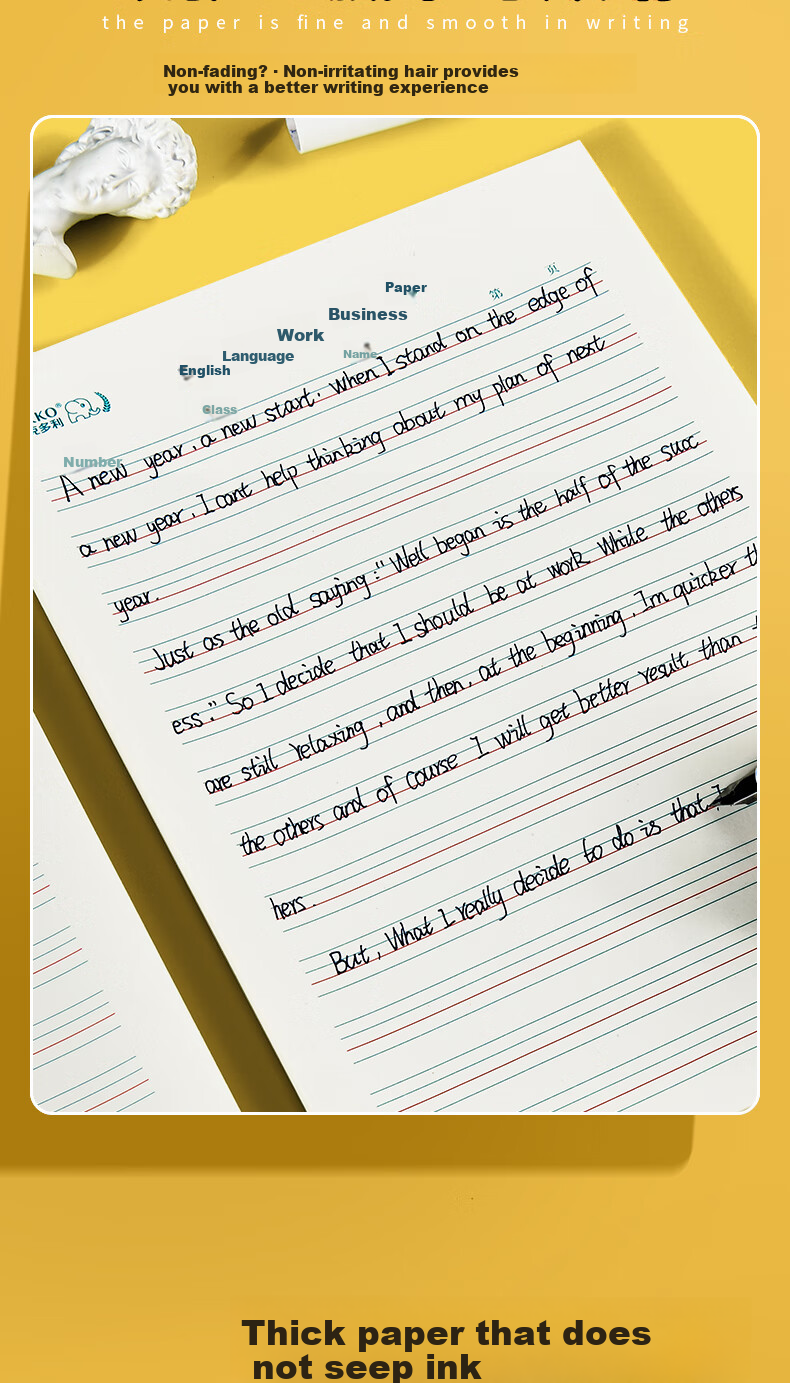 the paper is fine and smooth in writing
Non-fading? · Non-irritating hair provides
you with a better writing experience
Paper
Business
Work
Language
English
Name
Class
Number
第 页
KO®
克多利
A new year, a new start. When I stand on the edge of
a new year, I cant help thinking about my plan of next
year.
Just as the old saying:"Well began is the half of the succ
ess." So I decide that I should be at work While the others
are still relaxing, and then, at the beginning, Im quicker
the others and of course I will get better result than
hers.
But, What I really decide to do is that I
Thick paper that does
not seep ink